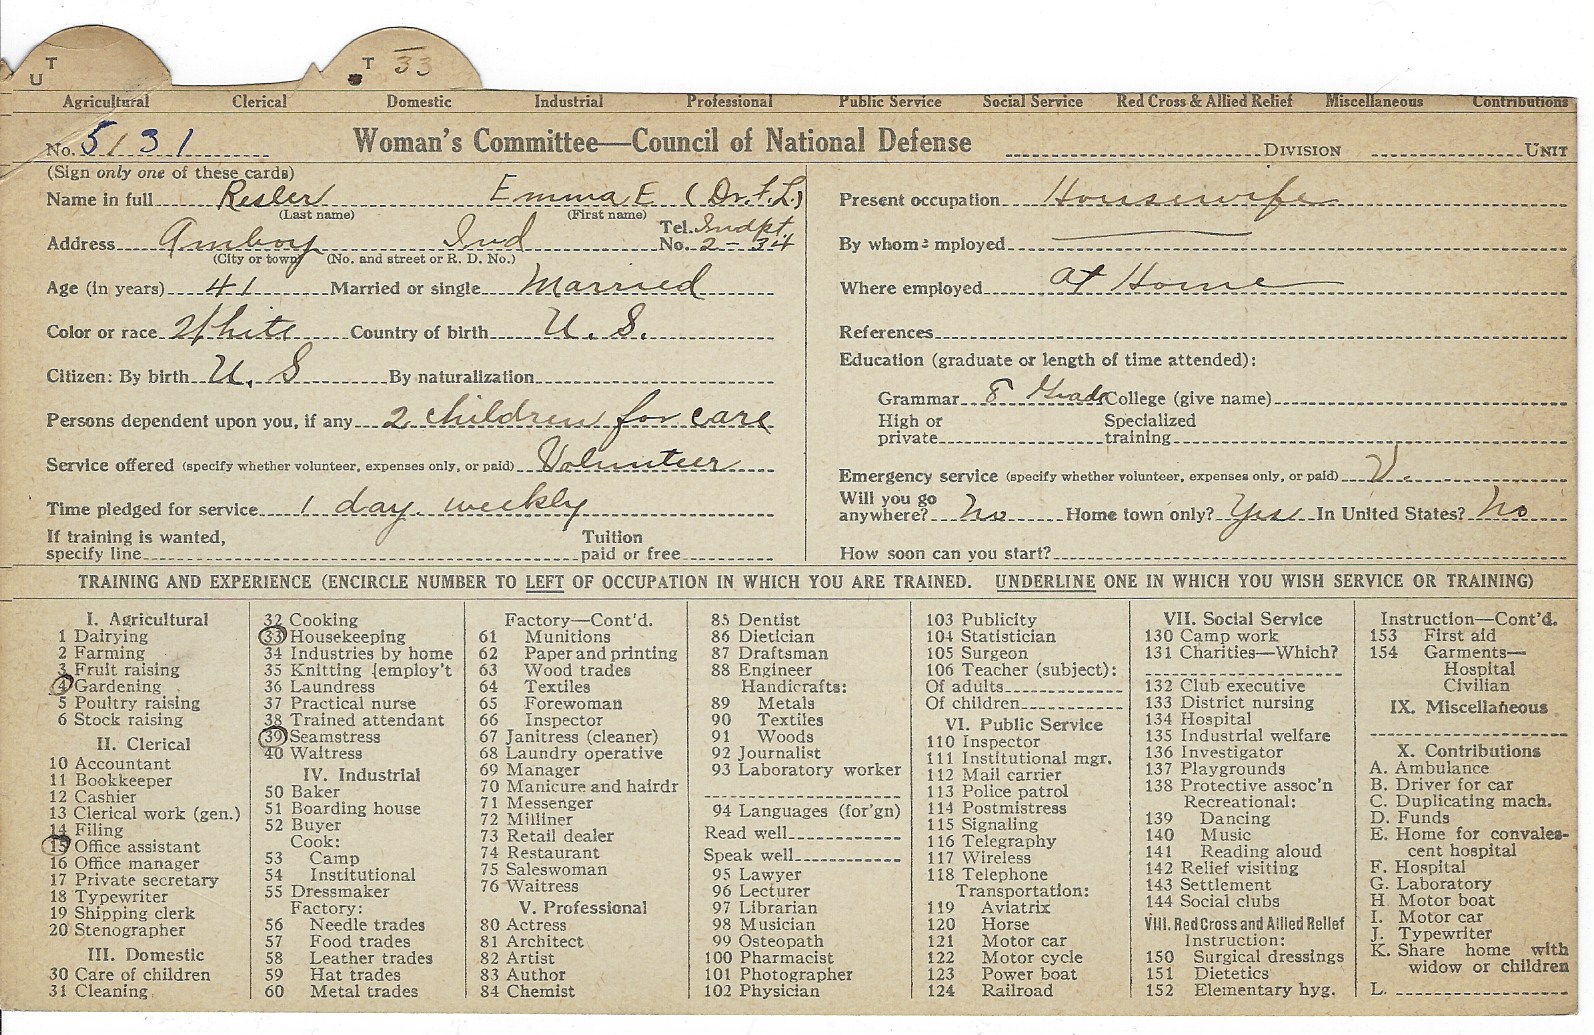 T
U
T 33
Agricultural Clerical Domestic Industrial Professional Public Service Social Service Red Cross & Allied Relief Miscellaneous Contributions
No. 5131 Woman's Committee—Council of National Defense DIVISION UNIT
(Sign only one of these cards)
Name in full Resler Emma E. (Dr. F. L.)
(Last name) (First name)
Address Amboy Ind Tel. No. Indpt. 2-34
(City or town) (No. and street or R. D. No.)
Age (in years) 41 Married or single Married
Color or race White Country of birth U. S.
Citizen: By birth U. S By naturalization
Persons dependent upon you, if any 2 children for care
Service offered (specify whether volunteer, expenses only, or paid) Volunteer
Time pledged for service 1 day weekly
If training is wanted,
specify line
Tuition
paid or free
Present occupation Housewife
By whom employed
Where employed at Home
References
Education (graduate or length of time attended):
Grammar 8 Grade College (give name)
High or
private
Specialized
training
Emergency service (specify whether volunteer, expenses only, or paid) V.
Will you go
anywhere? No Home town only? Yes In United States? No
How soon can you start?
TRAINING AND EXPERIENCE (ENCIRCLE NUMBER TO LEFT OF OCCUPATION IN WHICH YOU ARE TRAINED. UNDERLINE ONE IN WHICH YOU WISH SERVICE OR TRAINING)
I. Agricultural
1 Dairying
2 Farming
3 Fruit raising
4 Gardening
5 Poultry raising
6 Stock raising
II. Clerical
10 Accountant
11 Bookkeeper
12 Cashier
13 Clerical work (gen.)
14 Filing
15 Office assistant
16 Office manager
17 Private secretary
18 Typewriter
19 Shipping clerk
20 Stenographer
III. Domestic
30 Care of children
31 Cleaning
32 Cooking
33 Housekeeping
34 Industries by home
35 Knitting {employ't
36 Laundress
37 Practical nurse
38 Trained attendant
39 Seamstress
40 Waitress
IV. Industrial
50 Baker
51 Boarding house
52 Buyer
Cook:
53 Camp
54 Institutional
55 Dressmaker
Factory:
56 Needle trades
57 Food trades
58 Leather trades
59 Hat trades
60 Metal trades
Factory—Cont'd.
61 Munitions
62 Paper and printing
63 Wood trades
64 Textiles
65 Forewoman
66 Inspector
67 Janitress (cleaner)
68 Laundry operative
69 Manager
70 Manicure and hairdr
71 Messenger
72 Milliner
73 Retail dealer
74 Restaurant
75 Saleswoman
76 Waitress
V. Professional
80 Actress
81 Architect
82 Artist
83 Author
84 Chemist
85 Dentist
86 Dietician
87 Draftsman
88 Engineer
Handicrafts:
89 Metals
90 Textiles
91 Woods
92 Journalist
93 Laboratory worker
94 Languages (for'gn)
Read well
Speak well
95 Lawyer
96 Lecturer
97 Librarian
98 Musician
99 Osteopath
100 Pharmacist
101 Photographer
102 Physician
103 Publicity
104 Statistician
105 Surgeon
106 Teacher (subject):
Of adults
Of children
VI. Public Service
110 Inspector
111 Institutional mgr.
112 Mail carrier
113 Police patrol
114 Postmistress
115 Signaling
116 Telegraphy
117 Wireless
118 Telephone
Transportation:
119 Aviatrix
120 Horse
121 Motor car
122 Motor cycle
123 Power boat
124 Railroad
VII. Social Service
130 Camp work
131 Charities—Which?
132 Club executive
133 District nursing
134 Hospital
135 Industrial welfare
136 Investigator
137 Playgrounds
138 Protective assoc'n
Recreational:
139 Dancing
140 Music
141 Reading aloud
142 Relief visiting
143 Settlement
144 Social clubs
VIII. Red Cross and Allied Relief
Instruction:
150 Surgical dressings
151 Dietetics
152 Elementary hyg.
Instruction—Cont'd.
153 First aid
154 Garments—
Hospital
Civilian
IX. Miscellaneous
X. Contributions
A. Ambulance
B. Driver for car
C. Duplicating mach.
D. Funds
E. Home for convales-
cent hospital
F. Hospital
G. Laboratory
H. Motor boat
I. Motor car
J. Typewriter
K. Share home with
widow or children
L.